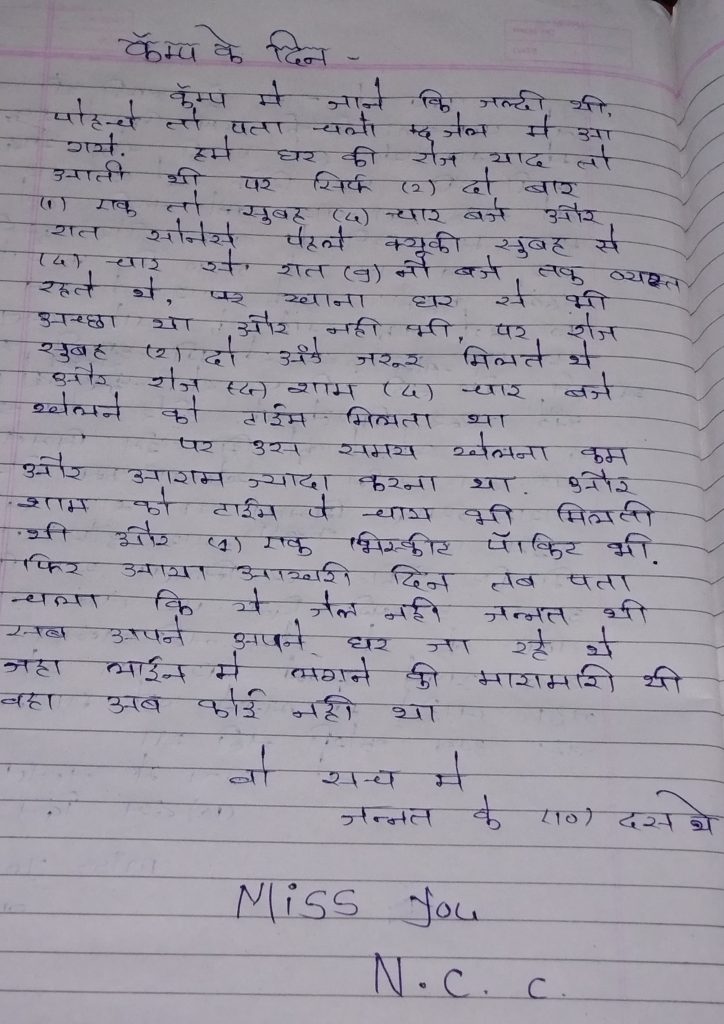 कॅम्प के दिन -
कॅम्प मे जाने कि जल्दी थी,
पोहच्चे तो पता चला जेल मे आ
गये. हमे घर की रोज याद तो
आती थी पर सिर्फ (२) दो बार
(१) एक तो सुबह (४) चार बजे और
रात सोनेसे पेहले क्युकी सुबह से
(४) चार से रात (९) नौ बजे तक व्यस्त
रहते थे, पर खाना घर से भी
अच्छा था और नही भी, पर रोज
सुबह (२) दो अंडे जरुर मिलते थे
और रोज (४) शाम (४) चार बजे
खेलने को टाईम मिलता था
पर उस समय खेलना कम
और आराम ज्यादा करना था. और
शाम को टाईम पे चाय भी मिलती
थी और (१) एक बिस्कीट पॅाकिट भी.
फिर आया आखरी दिन तब पता
चला कि ये जेल नही जन्नत थी
सब अपने अपने घर जा रहे थे
जहा लाईन मे लगने की मारामारी थी
वहा अब कोई नही था
वो सच मे
जन्नत के (10) दस थे
Miss you
N.C.C.